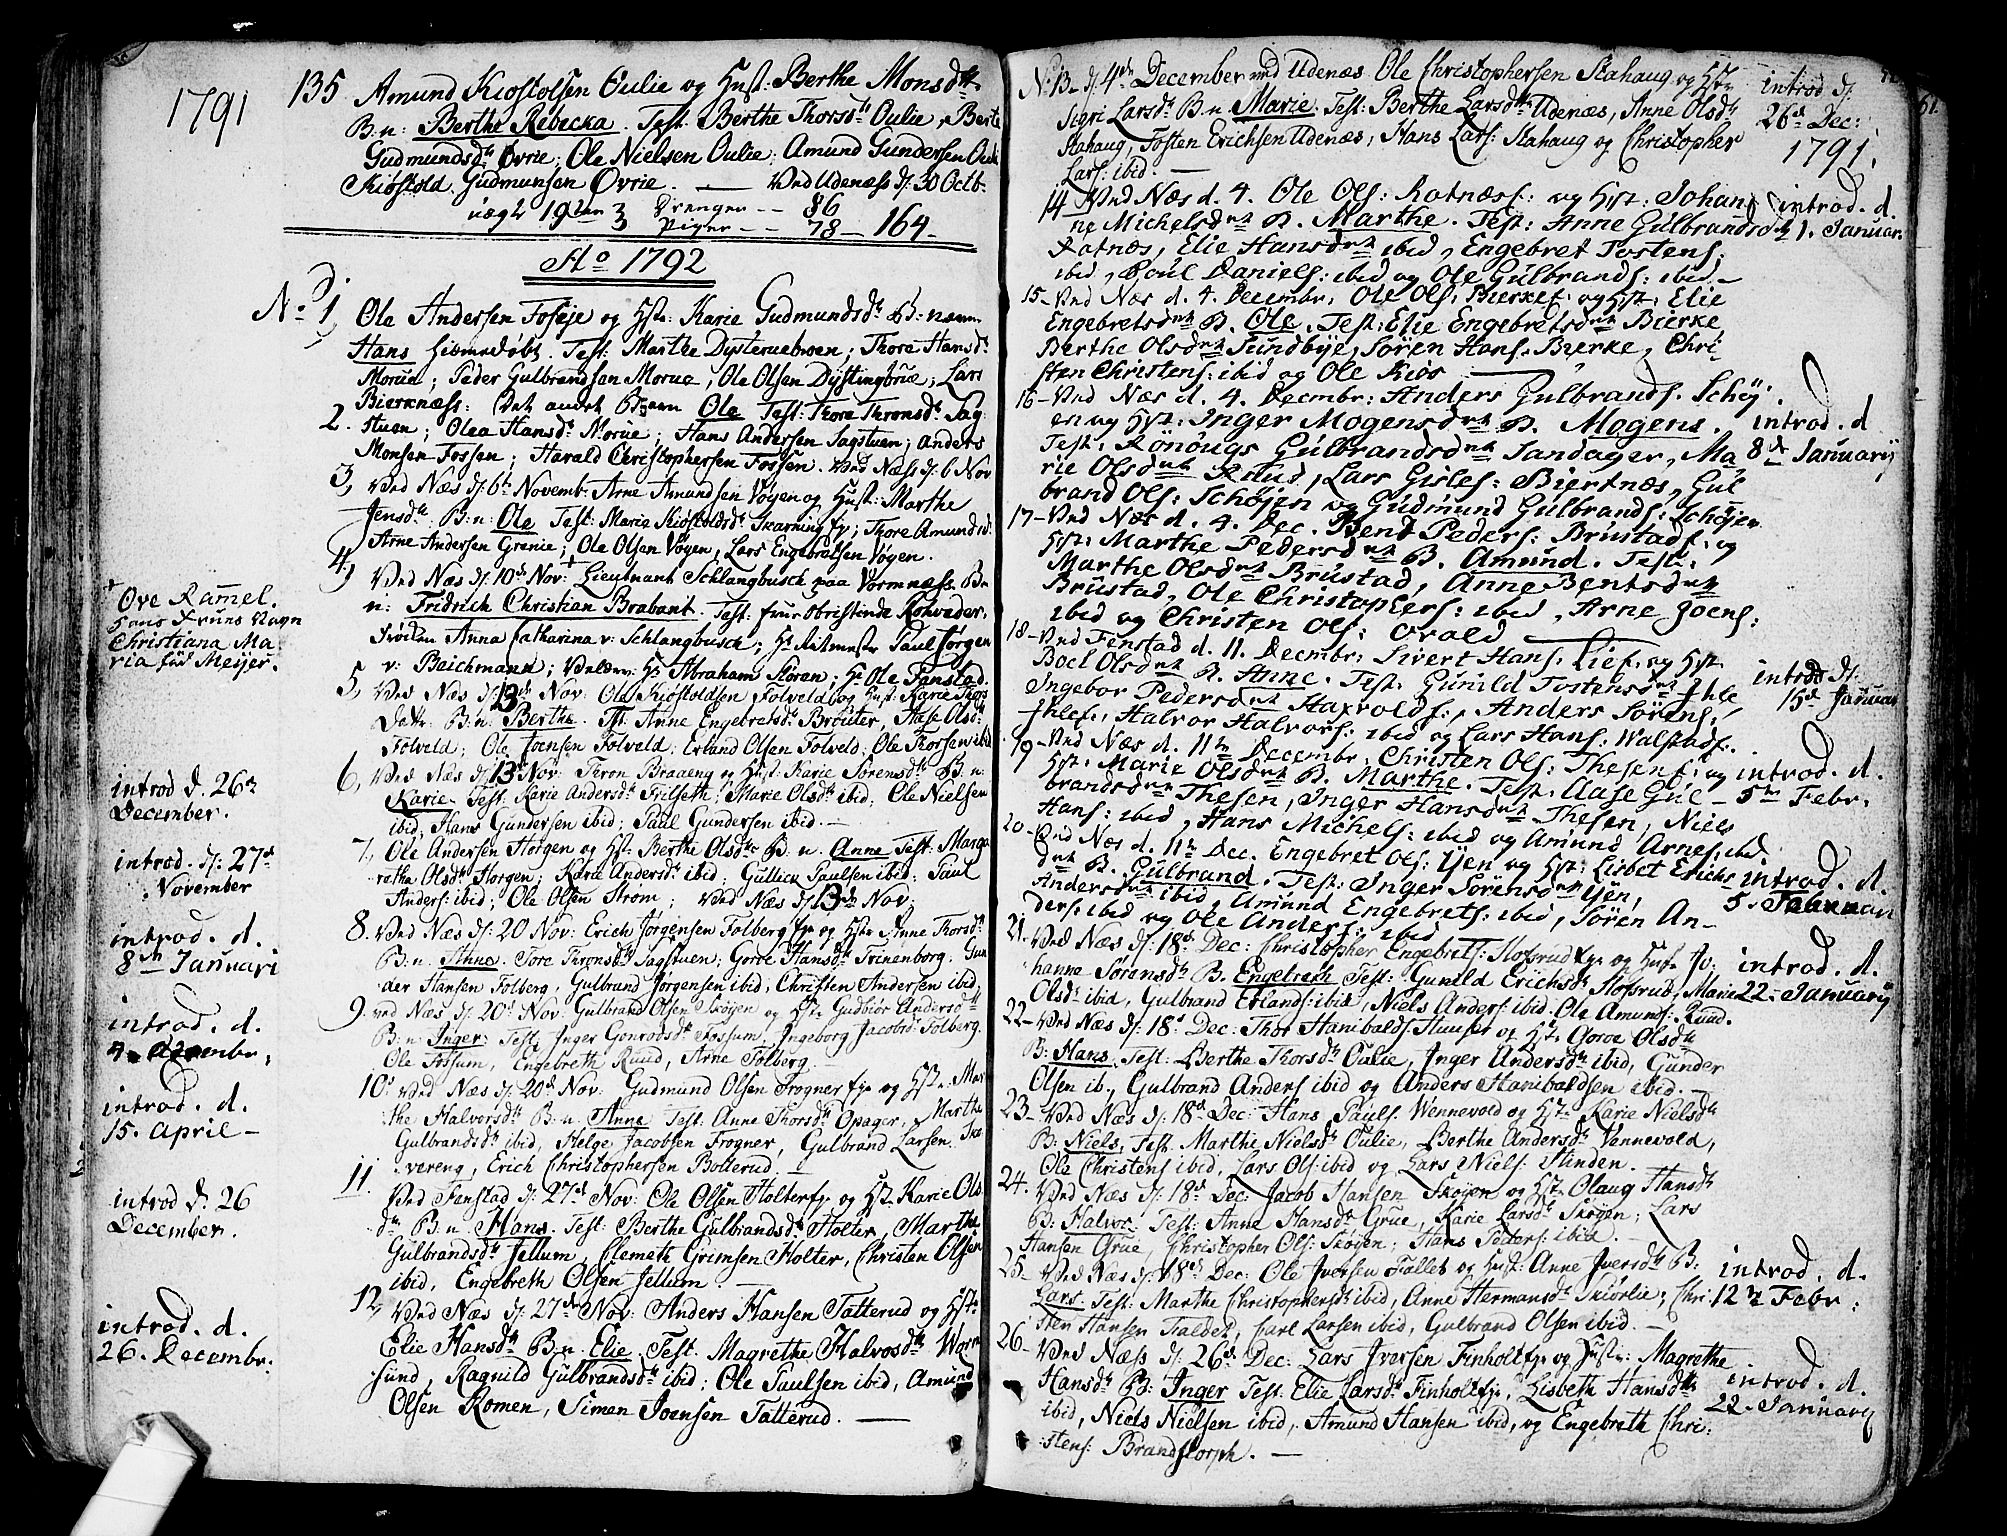 1791
135 Amund Kiøstolsen Oulie og Hust: Berthe Monsdtr
B:n: Berthe Rebecka. Test: Berthe Thorsdtr Oulie, Berte
Gudmundsdtr Øvrie; Ole Nielsen Oulie; Amund Gundersen Oulie
Kiøstold Gudmunsen Øvrie. — Ved Udenæss d: 30 Octb.
Drenger -- 86
Piger -- 78 — 164 —
Ao 1792
No 1, Ole Andersen Foseje og Hstr: Karie Gudmundsdtr B: næmn
Hans hiemedøbt. Test: Marthe Dysteruebroen; Thore Hansdtr
Morue; Peder Gulbrandsen Morue, Ole Olsen Dystingbrue; Lars
Bierknæss: Det andet Barn Ole Test: Thore Thronsdtr Sag
2. stuen; Olea Hansdtr Morue; Hans Andersen Sagstuen; anders
Monsen Fossen; Harald Christophersen Fossen. Ved Næss d: 6 Nov
3, Ved Næs d: 6te Novemb: Arne Amundsen Vøyen og Hust: Marthe
Jensdtr: B:n: Ole Test: Marie Kiøstoldsdtr Skarning; Thore Amundsd:
Arne Andersen Grenie; Ole Olsen Vøyen, Lars Engebretsen Vøyen.
4, Ved Næs d: 10de Nov: + Lieutnant Schlangbusch paa Vormnæss B:
n: Fridrich Christian Brabant. Test: frue Obristinde Rohweder,
Frøiken Anna Catharina v: Schlangbusch; Hr Ritmester Paul Jørgen
v: Beichmann; Hr Abraham Storen; Hr Ole Fanstad.
+ Ove Ramel.
Hans Fruns Nagn
Christiana Ma
ria fød Meyer.
5, Ved Næs d: 13de Nov: Ole Kiøstoldsen Folveld og Hust: Karie Thors
Datter B:n: Berthe. Tst: Anne Engebretsdtr Brouter, Aase Olsdtr:
Folveld; Ole Joensen Folveld; Erland Olsen Folveld; Ole Thorsen ibid
6, Ved Næs d: 13 Nov: Thron Braaeng og Hust: Karie Sørensdtr B:n:
Karie. Test: Karie Andersdtr Frilseth; Marie Olsdtr ibid; Ole Nielsen
ibid; Hans Gundersen ibid; Paul Gundersen ibid. —
introd d. 26de
December.
7, Ole Andersen Horgen og Hst: Berthe Olsdtr B:n. Anne Test: Marga
rethe Olsdtr Horgen; Karie Andersdtr ibid; Gullick Paulsen ibid; Paul
Anders: ibid; Ole Olsen Strøm; Ved Næs d: 13de Nov:
introd. d: 27d
November
8. Ved Næs d: 20 Nov: Erich Jørgensen Folberg og Hstr Anne Thorsdtr
B:n. Anne. Tore Thronsdtr Sagstuen; Goroe Hansdtr Trinenborg. Gun
der Hansen Folberg, Gulbrand Jørgensen ibid, Christen Andersen ibid;
introd. d.
8de Januari
9. ved Næs d: 20d Nov: Gulbrand Olsen Skøyen og Hstr Gudbiør Andersdtr
B:n: Inger: Test, Inger Gonrodsdtr Fossum, Ingeborg Jacobsdtr Folberg.
Ole Fossum, Engebreth Ruud, Arne Folberg.
introd. d.
10. Ved Næs d: 20d Nov: Gudmund Olsen Frogner og Hstr: Mar
the Halvorsdtr B:n: Anne Test: Anne Thorsdtr Opager, Marthe
Gulbrandsdtr ibid, Helge Jacobsen Frogner, Gulbrand Larsen
vereng, Erich Christophersen Bolterud. —
introd. d.
15. April —
11. Ved Fenstad d: 27d Nov: Ole Olsen Holter og Hstr Karie Ols
dtr B:n: Hans. Test: Berthe Gulbrandsdtr Holter, Marthe
Gulbrandsdtr Jellum, Clemeth Grimsen Holter, Christen Olsen
ibid, Engebreth Olsen Jellum —
introd d. 26
December.
12, Ved Næs d: 27de Nov: Anders Hansen Tatterud og Hstr
Elie Hansdtr B:n. Elie. Test. Magrethe Halvosdtr Worm
sund, Ragnild Gulbrandsdtr ibid; Ole Paulsen ibid, Amund
Olsen Romen, Simen Joensen Tatterud. —
introd. d.
26. Decembr.
No 13. d: 4de December ved Udenæs Ole Christophersen Stahaug og Hstr
Sigri Larsdtr B:n. Marie. Test: Berthe Larsdtr Udenæs, Anne Olsdtr
Stahaug, Tosten Erichsen Udenæs, Hans Lars: Stahaug og Christopher
Lars: ibid. —
introd d:
26d Dec:
1791.
14 Ved Næs d. 4. Ole Ols: Rotnæss: og Hst: Johan
ne Michelsdtr B. Marthe. Test: Anne Gulbrandsdtr
Rotnæs, Elie Hansdtr ibid, Engebret Tostens:
ibid, Poul Daniels: ibid og Ole Gulbrands: ibid —
introd. d.
1. Januar.
15 — Ved Næs d. 4. Decembr: Ole Ols: Bierkef: og Hst: Elie
Engebretsdtr B. Ole. Test: Elie Engebretsdtr Bierke,
Berthe Olsdtr Sundbye, Sören Hans: Bierke, Chri
sten Christens: ibid og Ole Kiös —
16 — Ved Næs d. 4. Decmbr: Anders Gulbrands. Schöy
en og Hst: Inger Mogensdtr B. Mogens.
Test: Rönöugs Gulbrandsdtr Sandager, Ma
rie Olsdtr Rtud, Lars Gisles: Biertnæs, Gul
brand Ols: Schöjen og Gudmund Gulbrands: Schöjen
introd. d
8de Januarij
17 — Ved Næs d. 4. Dec. Bend Peders: Brustads: og
Hst: Marthe Pedersdtr B. Amund. Test:
Marthe Olsdtr Brustad, Anne Bentsdtr
Brustad, Ole Christophers: ibid, Arne Joens:
ibid og Christen Ols: Ovald —
18 — Ved Fenstad d. 11. Decmbr: Sivert Hans: Lief: og Hst
Boel Olsdtr B. Anne. Test: Gunild Tostensdtr Ihle
Ingebor Pedersdtr Haxvolds:, Anders Sörens:
Ihlef:, Halvor Halvors: ibid og Lars Hans: Walstadf:.
introd d:
15d Januar
19 — Ved Næs d. 11te Decembr: Christen Ols: Thesenf: og
Hst: Marie Olsdtr B. Marthe. Test: Aase Gul
brandsdtr Thesen, Inger Hansdtr Thesen, Niels
Hans: ibid, Hans Michels: ibid og Amund Arnes: ibid.
introd. d.
5te Febr.
20 — Ved Næs d. 11te Dec. Engebret Ols: Ijen og Hst: Lisbet Erichs
dtr B. Gulbrand. Test: Inger Sörensdtr Ijen,
Andersdtr ibid, Amund Engebrets: ibid, Sören An —
ders: ibid og Ole Anders: ibid
introd. d.
21. Ved Næs d: 18d Dec: Christopher Engebrets: Hofsrud og Huf: Jo.
hanne Sørensdtr B. Engebreth Test: Gunild Erichsdtr Hofsrud, Marie
Olsdtr ibid, Gulbrand Erlands: ibid, Niels Anders: ibid. Ole Amunds: Ruud.
introd. d.
22. Januarij
22 — Ved Næs d: 18d Dec: Thor Hanibalds: Huuser og Hstr Goroe Olsdtr
B: Hans. Test: Berthe Thorsdtr Oulie, Inger Andersdtr ibid, Gunder
Olsen ib., Gulbrand Anders ibid og Anders Hanibaldsen ibid. —
23 — Ved Næs d: 18d Dec: Hans Pauls: Wennevold og Hstr Karie Nielsdtr
B: Niels, Test: Marthe Nielsdtr Oulie, Berthe Andersdtr Vennevold,
Ole Christens ibid, Lars Ols: ibid og Lars Niels: Hinden.
24. Ved Næs d: 18d Dec: Jacob Hansen Skøyen og Hstr Olaug Hansdtr
B: Halvor Test: Anne Hansdtr Grue, Karie Larsdtr Skøyen; Lars
Hansen Grue, Christopher Ols: Skøyen; Hans Peders: ibid. —
25 — Ved Næs d: 18d Dec: Ole Iversen Fallet og Hust: Anne Iversdtr B:
Lars. Test: Marthe Christophersdtr ibid, Anne Hermansdtr Skiørlie; Chri
sten Hansen Faldet, Carl Larsen ibid, Gulbrand Olsen ibid. —
introd. d.
12te Febr:
26 — Ved Næss d: 26d Dec: Lars Iversen Finholt og Hustr: Magrethe
Hansdtr B: Inger Test: Elie Larsdtr Finholt, Lisbeth Hansdtr
ibid, Niels Nielsen ibid, Amund Hansen ibid, og Engebreth Chri:
stens: Brandstorph. —
introd. d.
22. Januarij